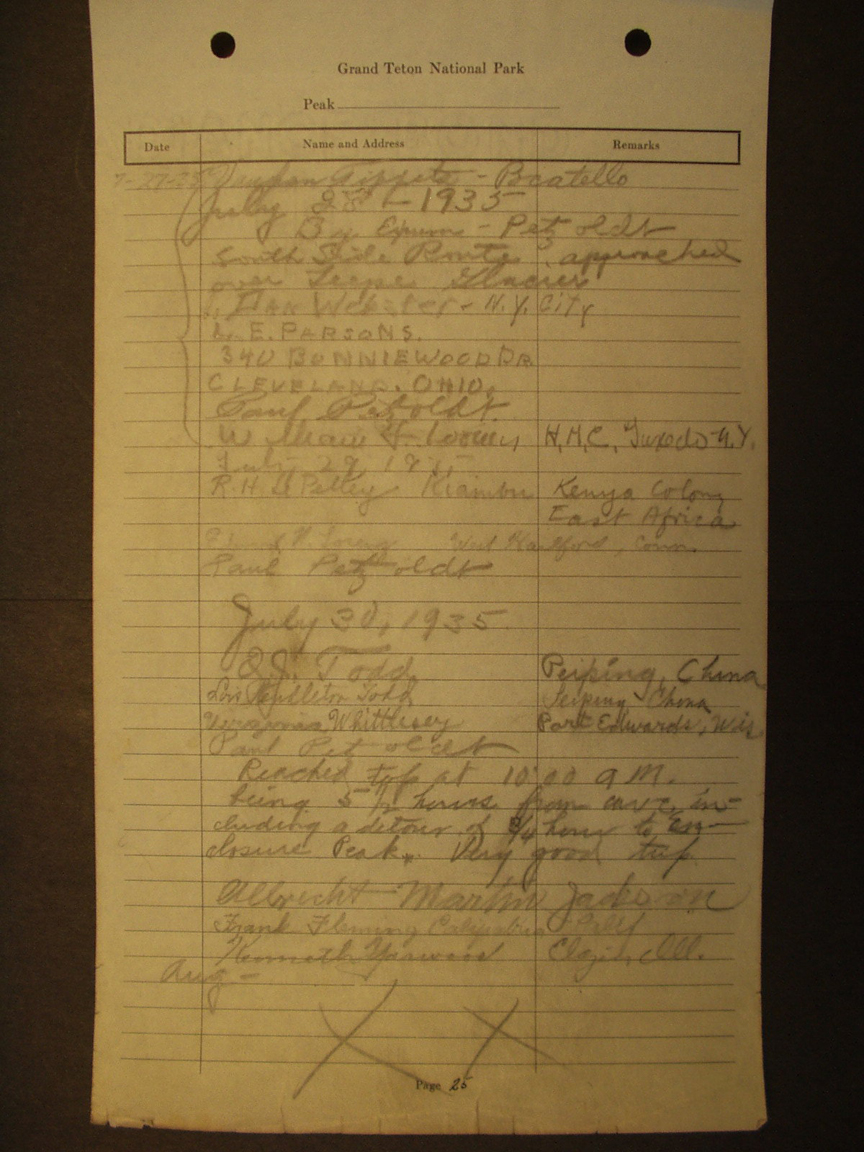 Grand Teton National Park
Peak
Date Name and Address Remarks
7-27-35 Vaughan Tippets - Pocatello
July 28 - 1935
By Exum - Petzoldt
South Side Route, approached
over Teepe Glacier
Dan Webster - N.Y. City
E. PARSONS.
340 BONNIEWOOD DR
CLEVELAND. OHIO.
Paul Petzoldt
William H. Loomis H.M.C. Tuxedo N.Y.
July 29, 1935
R.H. Kiambu Kenya Colony
East Africa
West Hartford, Conn.
Paul Petzoldt
July 30, 1935
O.J. Todd, Peiping, China
Lois Pendleton Todd Peiping China
Virginia Whittlesey Port Edwards, Wis
Paul Petzoldt
Reached top at 10:00 A.M.
being 5 1/2 hours from cave, in-
cluding a detour of 3/4 hour to En-
closure Peak. Very good trip
Albrecht Martin Jackson
Frank Fleming Calif
Kenneth Elgin, Ill.
Aug -
Page 25